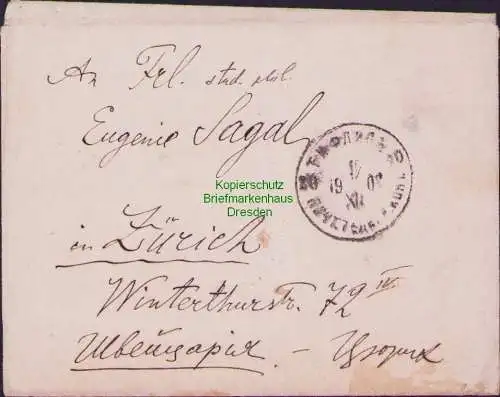 An Frl. stud. phil.
Eugenie Sagal
in Zürich
Winterthurstr. 72 IV.
Швейцарія - Цюрихъ
ТИФЛИСЪ
19
ПОЧ. ТЕЛЕГР. КОНТ.
Kopierschutz
Briefmarkenhaus
Dresden